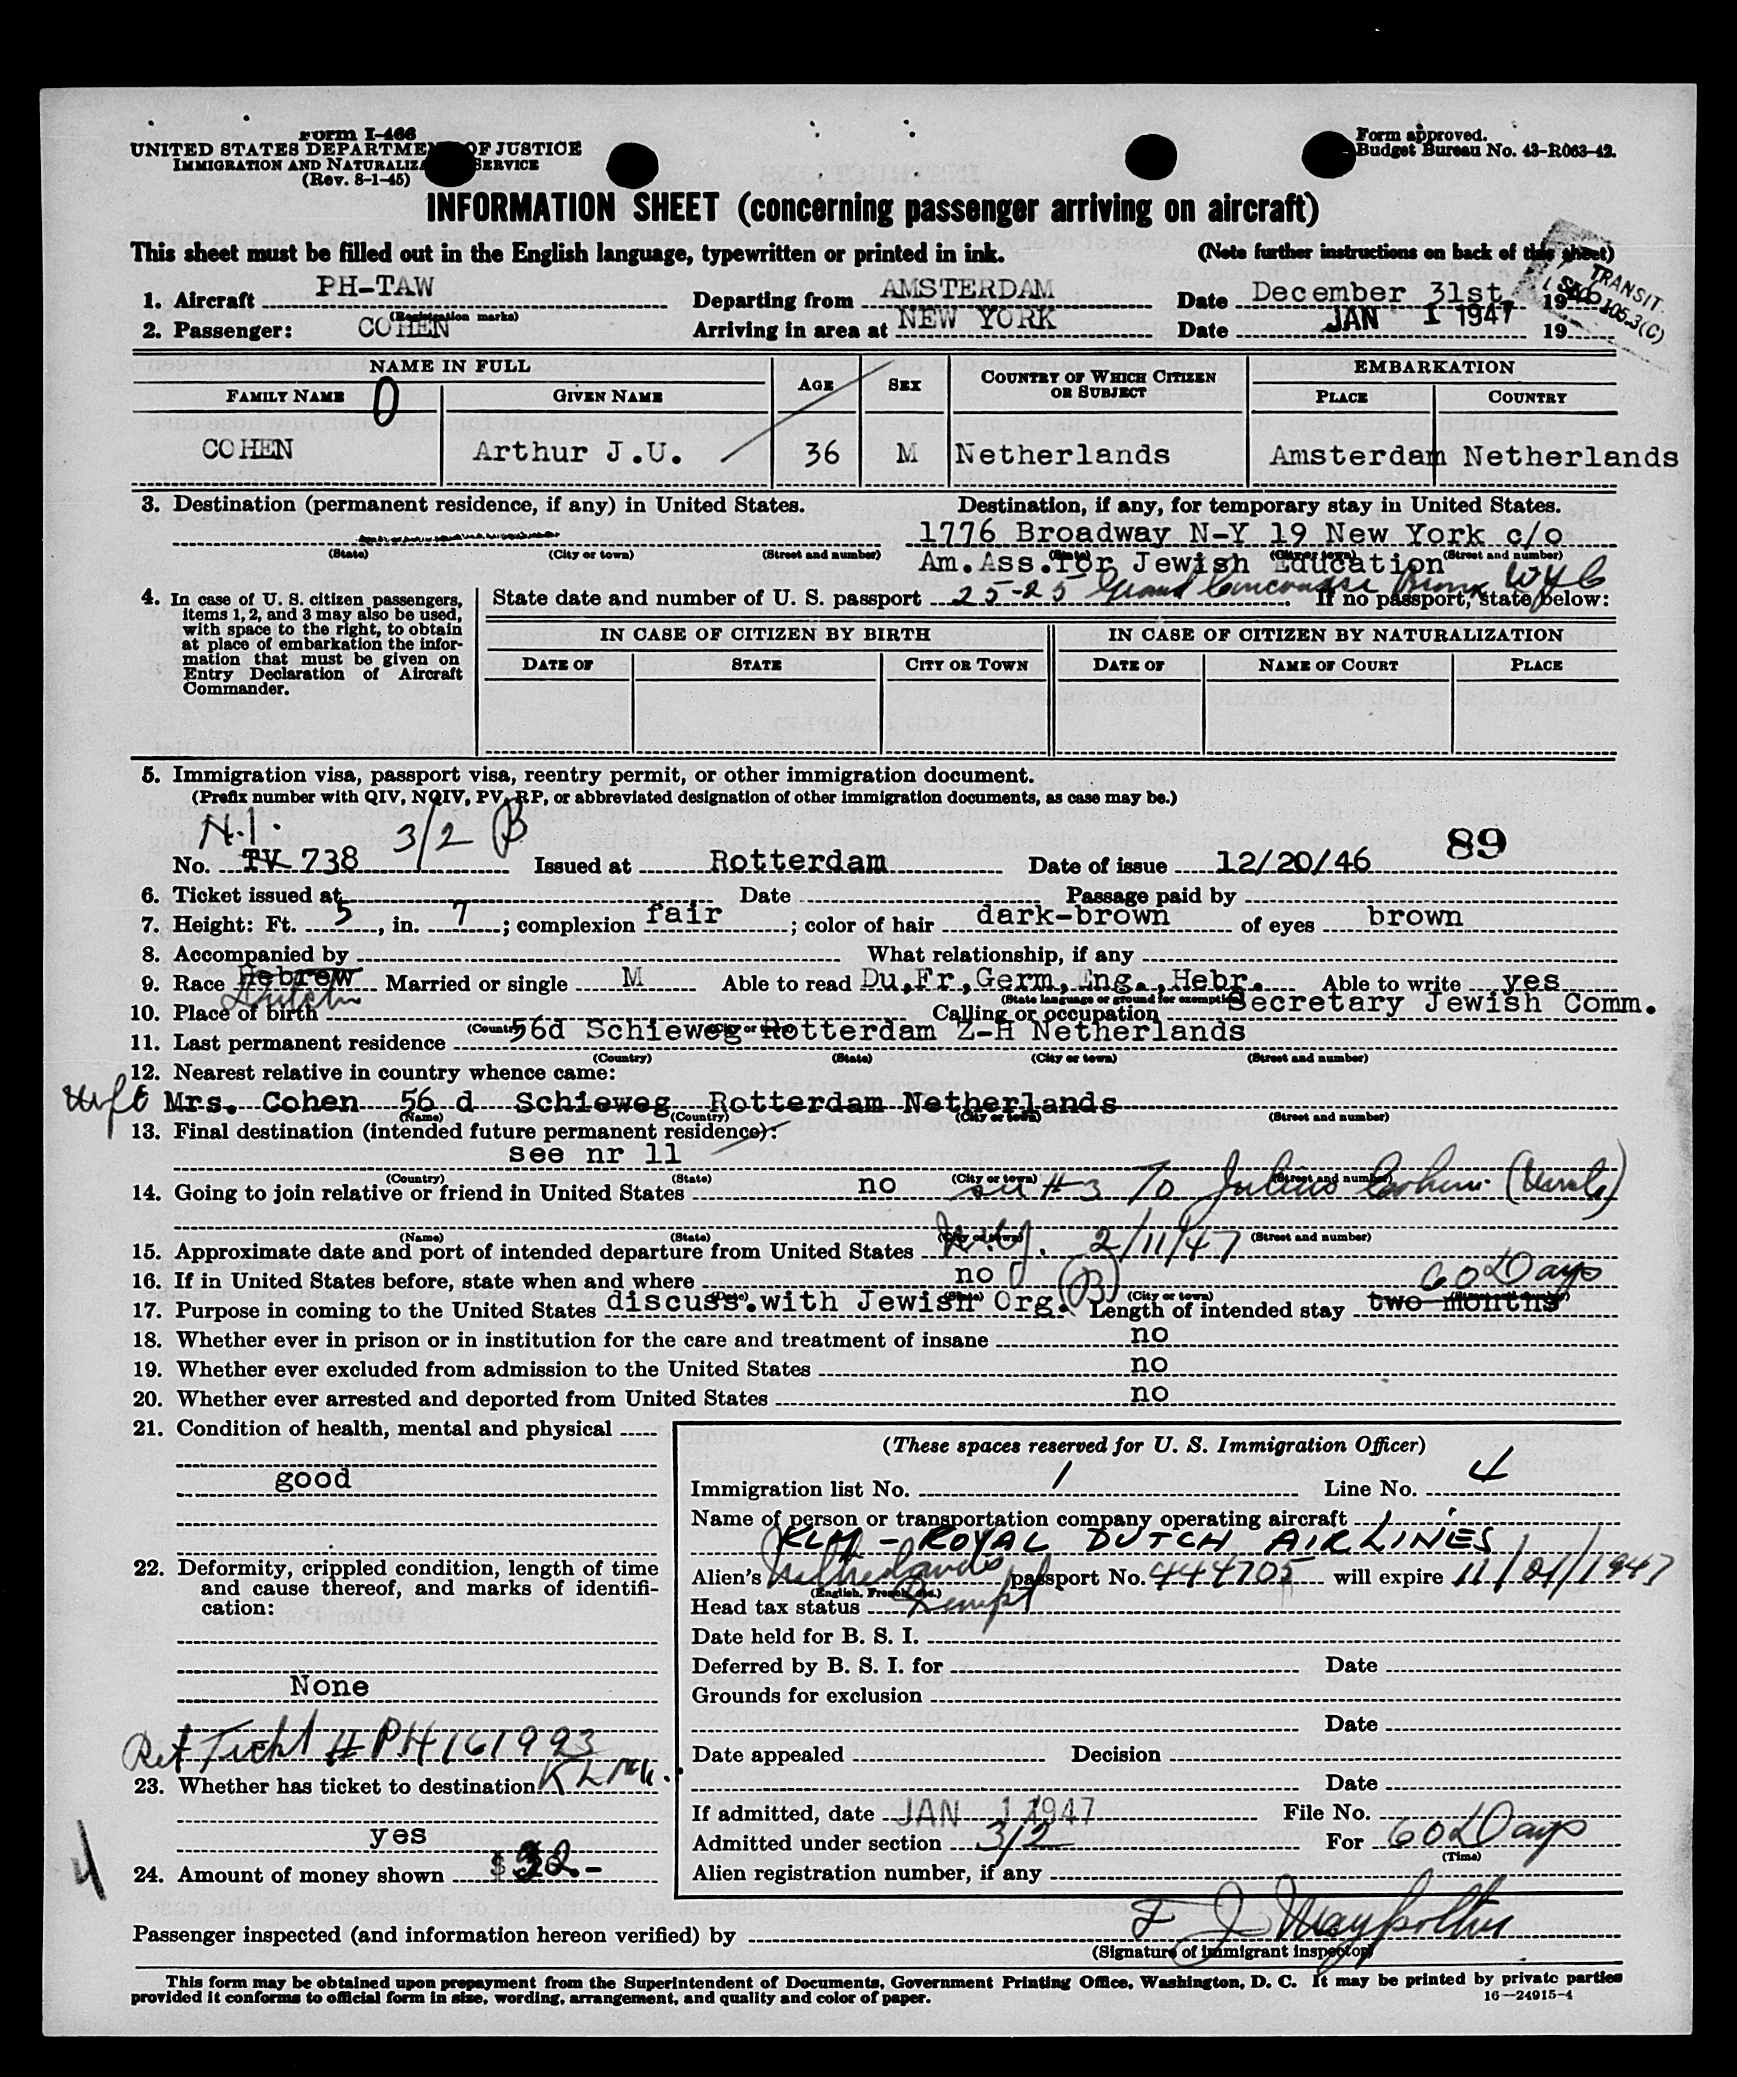 Form I-466
UNITED STATES DEPARTMENT OF JUSTICE
IMMIGRATION AND NATURALIZATION SERVICE
(Rev. 8-1-45)
Form approved.
Budget Bureau No. 43-R063-42.
INFORMATION SHEET (concerning passenger arriving on aircraft)
This sheet must be filled out in the English language, typewritten or printed in ink. (Note further instructions on back of this sheet)
TRANSIT
SEC. 105.3(C)
1. Aircraft PH-TAW Departing from AMSTERDAM Date December 31st, 19
(Registration marks)
2. Passenger: COHEN Arriving in area at NEW YORK Date JAN 1 1947 19
NAME IN FULL AGE SEX COUNTRY OF WHICH CITIZEN OR SUBJECT EMBARKATION
FAMILY NAME GIVEN NAME PLACE COUNTRY
COHEN Arthur J.U. 36 M Netherlands Amsterdam Netherlands
3. Destination (permanent residence, if any) in United States. Destination, if any, for temporary stay in United States.
1776 Broadway N-Y 19 New York c/o
(State) (City or town) (Street and number) (State) (City or town) (Street and number)
Am.Ass.for Jewish Education
25-25 Grand Concourse Bronx NYC
4. In case of U. S. citizen passengers, items 1, 2, and 3 may also be used, with space to the right, to obtain at place of embarkation the information that must be given on Entry Declaration of Aircraft Commander.
State date and number of U. S. passport If no passport, state below:
IN CASE OF CITIZEN BY BIRTH IN CASE OF CITIZEN BY NATURALIZATION
DATE OF STATE CITY OR TOWN DATE OF NAME OF COURT PLACE
5. Immigration visa, passport visa, reentry permit, or other immigration document.
(Prefix number with QIV, NQIV, PV, RP, or abbreviated designation of other immigration documents, as case may be.)
N.I. 3/2 B 89
No. TV 738 Issued at Rotterdam Date of issue 12/20/46
6. Ticket issued at Date Passage paid by
7. Height: Ft. 5, in. 7; complexion fair; color of hair dark-brown of eyes brown
8. Accompanied by What relationship, if any
9. Race Hebrew Married or single M Able to read Du,Fr,Germ,Eng.,Hebr. Able to write yes
Dutch (State language or ground for exemption)
10. Place of birth Calling or occupation Secretary Jewish Comm.
(Country) (City or town)
11. Last permanent residence 56d Schieweg Rotterdam Z-H Netherlands
(Country) (State) (City or town) (Street and number)
12. Nearest relative in country whence came:
wife Mrs. Cohen 56 d Schieweg Rotterdam Netherlands
(Name) (Country) (City or town) (Street and number)
13. Final destination (intended future permanent residence):
see nr 11
(Country) (State) (City or town) (Street and number)
14. Going to join relative or friend in United States no see #3 To Julius Cohen (Uncle)
(Name) (State) (City or town) (Street and number)
15. Approximate date and port of intended departure from United States N.Y. 2/11/47
16. If in United States before, state when and where no
(Date) (State) (City or town) (Street and number)
60 Days
17. Purpose in coming to the United States discuss.with Jewish Org. (B) Length of intended stay two months
18. Whether ever in prison or in institution for the care and treatment of insane no
19. Whether ever excluded from admission to the United States no
20. Whether ever arrested and deported from United States no
21. Condition of health, mental and physical
good
22. Deformity, crippled condition, length of time and cause thereof, and marks of identification:
None
Ret Ticket # PH 161993
KLM.
23. Whether has ticket to destination
yes
24. Amount of money shown $ 32.-
4
(These spaces reserved for U. S. Immigration Officer)
Immigration list No. 1 Line No. 4
Name of person or transportation company operating aircraft
KLM - ROYAL DUTCH AIRLINES
Alien's Netherlands passport No. 444705 will expire 11/01/1947
(English, French, etc.)
Head tax status Exempt
Date held for B. S. I.
Deferred by B. S. I. for Date
Grounds for exclusion
Date
Date appealed Decision
Date
If admitted, date JAN 1 1947 File No.
Admitted under section 3/2 For 60 Days
(Time)
Alien registration number, if any
Passenger inspected (and information hereon verified) by
(Signature of immigrant inspector)
This form may be obtained upon prepayment from the Superintendent of Documents, Government Printing Office, Washington, D. C. It may be printed by private parties
provided it conforms to official form in size, wording, arrangement, and quality and color of paper.
16—24915-4